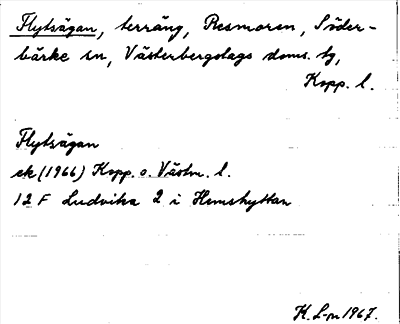 Flytsågan, terräng, Resmoren, Söder-
bärke sn, Västerbergslags doms. tg,
Kopp. l.
Flytsågan
ek (1966) Kopp. o. Västm. l.
12 F Ludvika 2 i Hemshyttan
K. L-n 1967.